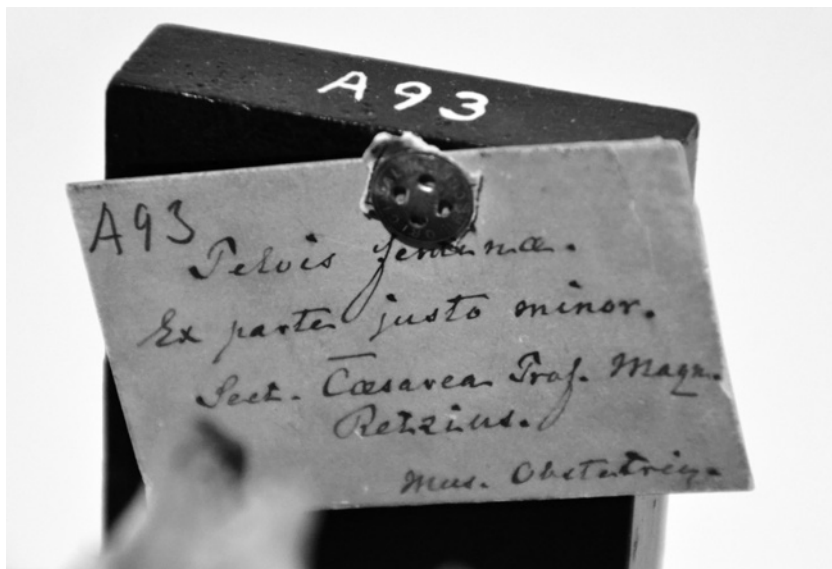 A93
A93
Pelvis feminæ.
Ex parte justo minor.
Sect. Cæsarea Prof. Magn.
Retzius.
Mus. Obstetric.